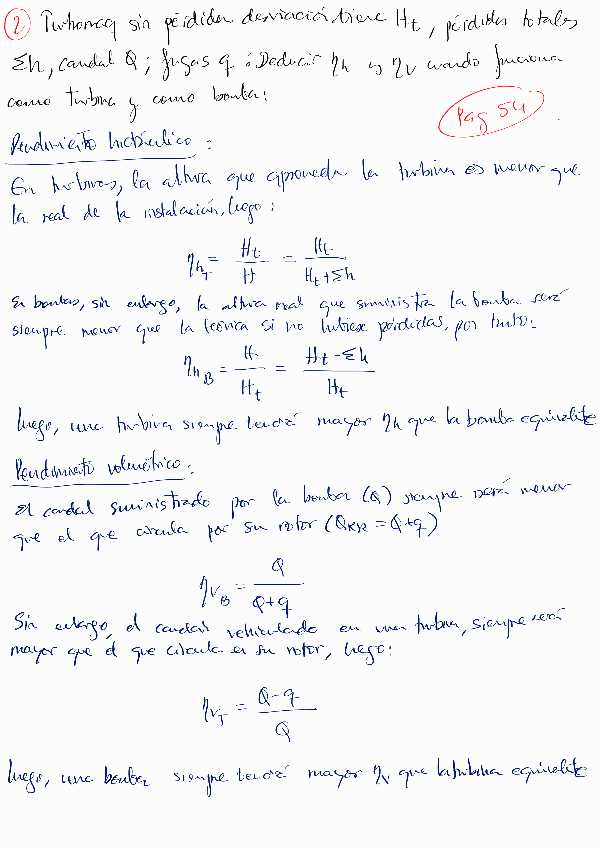 ② Turbomaq sin pérdidas desviación tiene Ht, pérdidas totales
Σh, caudal Q; fugas q: Deducir ηh y ηv cuando funciona
como turbina y como bomba:
Pag 54
Rendimiento hidráulico:
En turbinas, la altura que aprovecha la turbina es menor que
la real de la instalación, luego:
ηhT = Ht/H = Ht/(Ht+Σh)
En bombas, sin embargo, la altura real que suministra la bomba será
siempre menor que la teórica si no hubiese pérdidas, por tanto:
ηhB = H/Ht = (Ht-Σh)/Ht
luego, una turbina siempre tendrá mayor ηh que la bomba equivalente
Rendimiento volumétrico:
El caudal suministrado por la bomba (Q) siempre será menor
que el que circula por su rotor (Q = Q+q)
ηvB = Q/(Q+q)
Sin embargo, el caudal vehiculado en una turbina, siempre será
mayor que el que circula en su rotor, luego:
ηvT = (Q-q)/Q
luego, una bomba siempre tendrá mayor ηv que la turbina equivalente